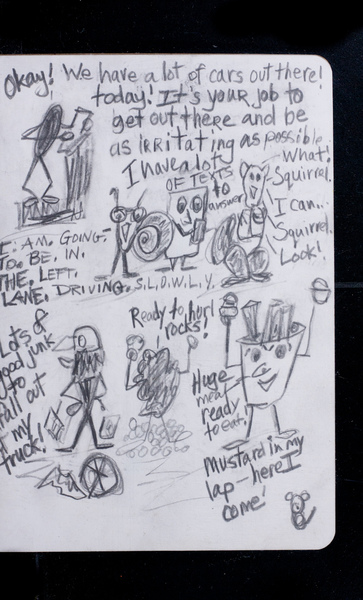 Okay! We have a lot of cars out there!
today! It's your job to
get out there and be
as irritating as possible.
I have a lot
OF TEXTS
to
answer
What!
Squirrel.
I can..
Squirrel.
Look!
I. AM. GOING.
TO. BE. IN.
THE. LEFT.
LANE. DRIVING. S.L.O.W.L.Y.
Lots of
good junk
to
fall out
my
truck!
Ready to hurl
rocks!
Huge
meal
ready
to eat!
Mustard in my
lap-here I
come!